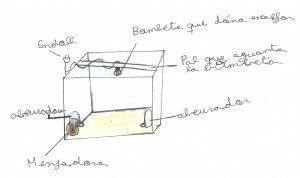 Bombeta que dóna escalfor
Endoll
Pal que aguanta
la bombeta
abeurador
abeurador
Menjadora